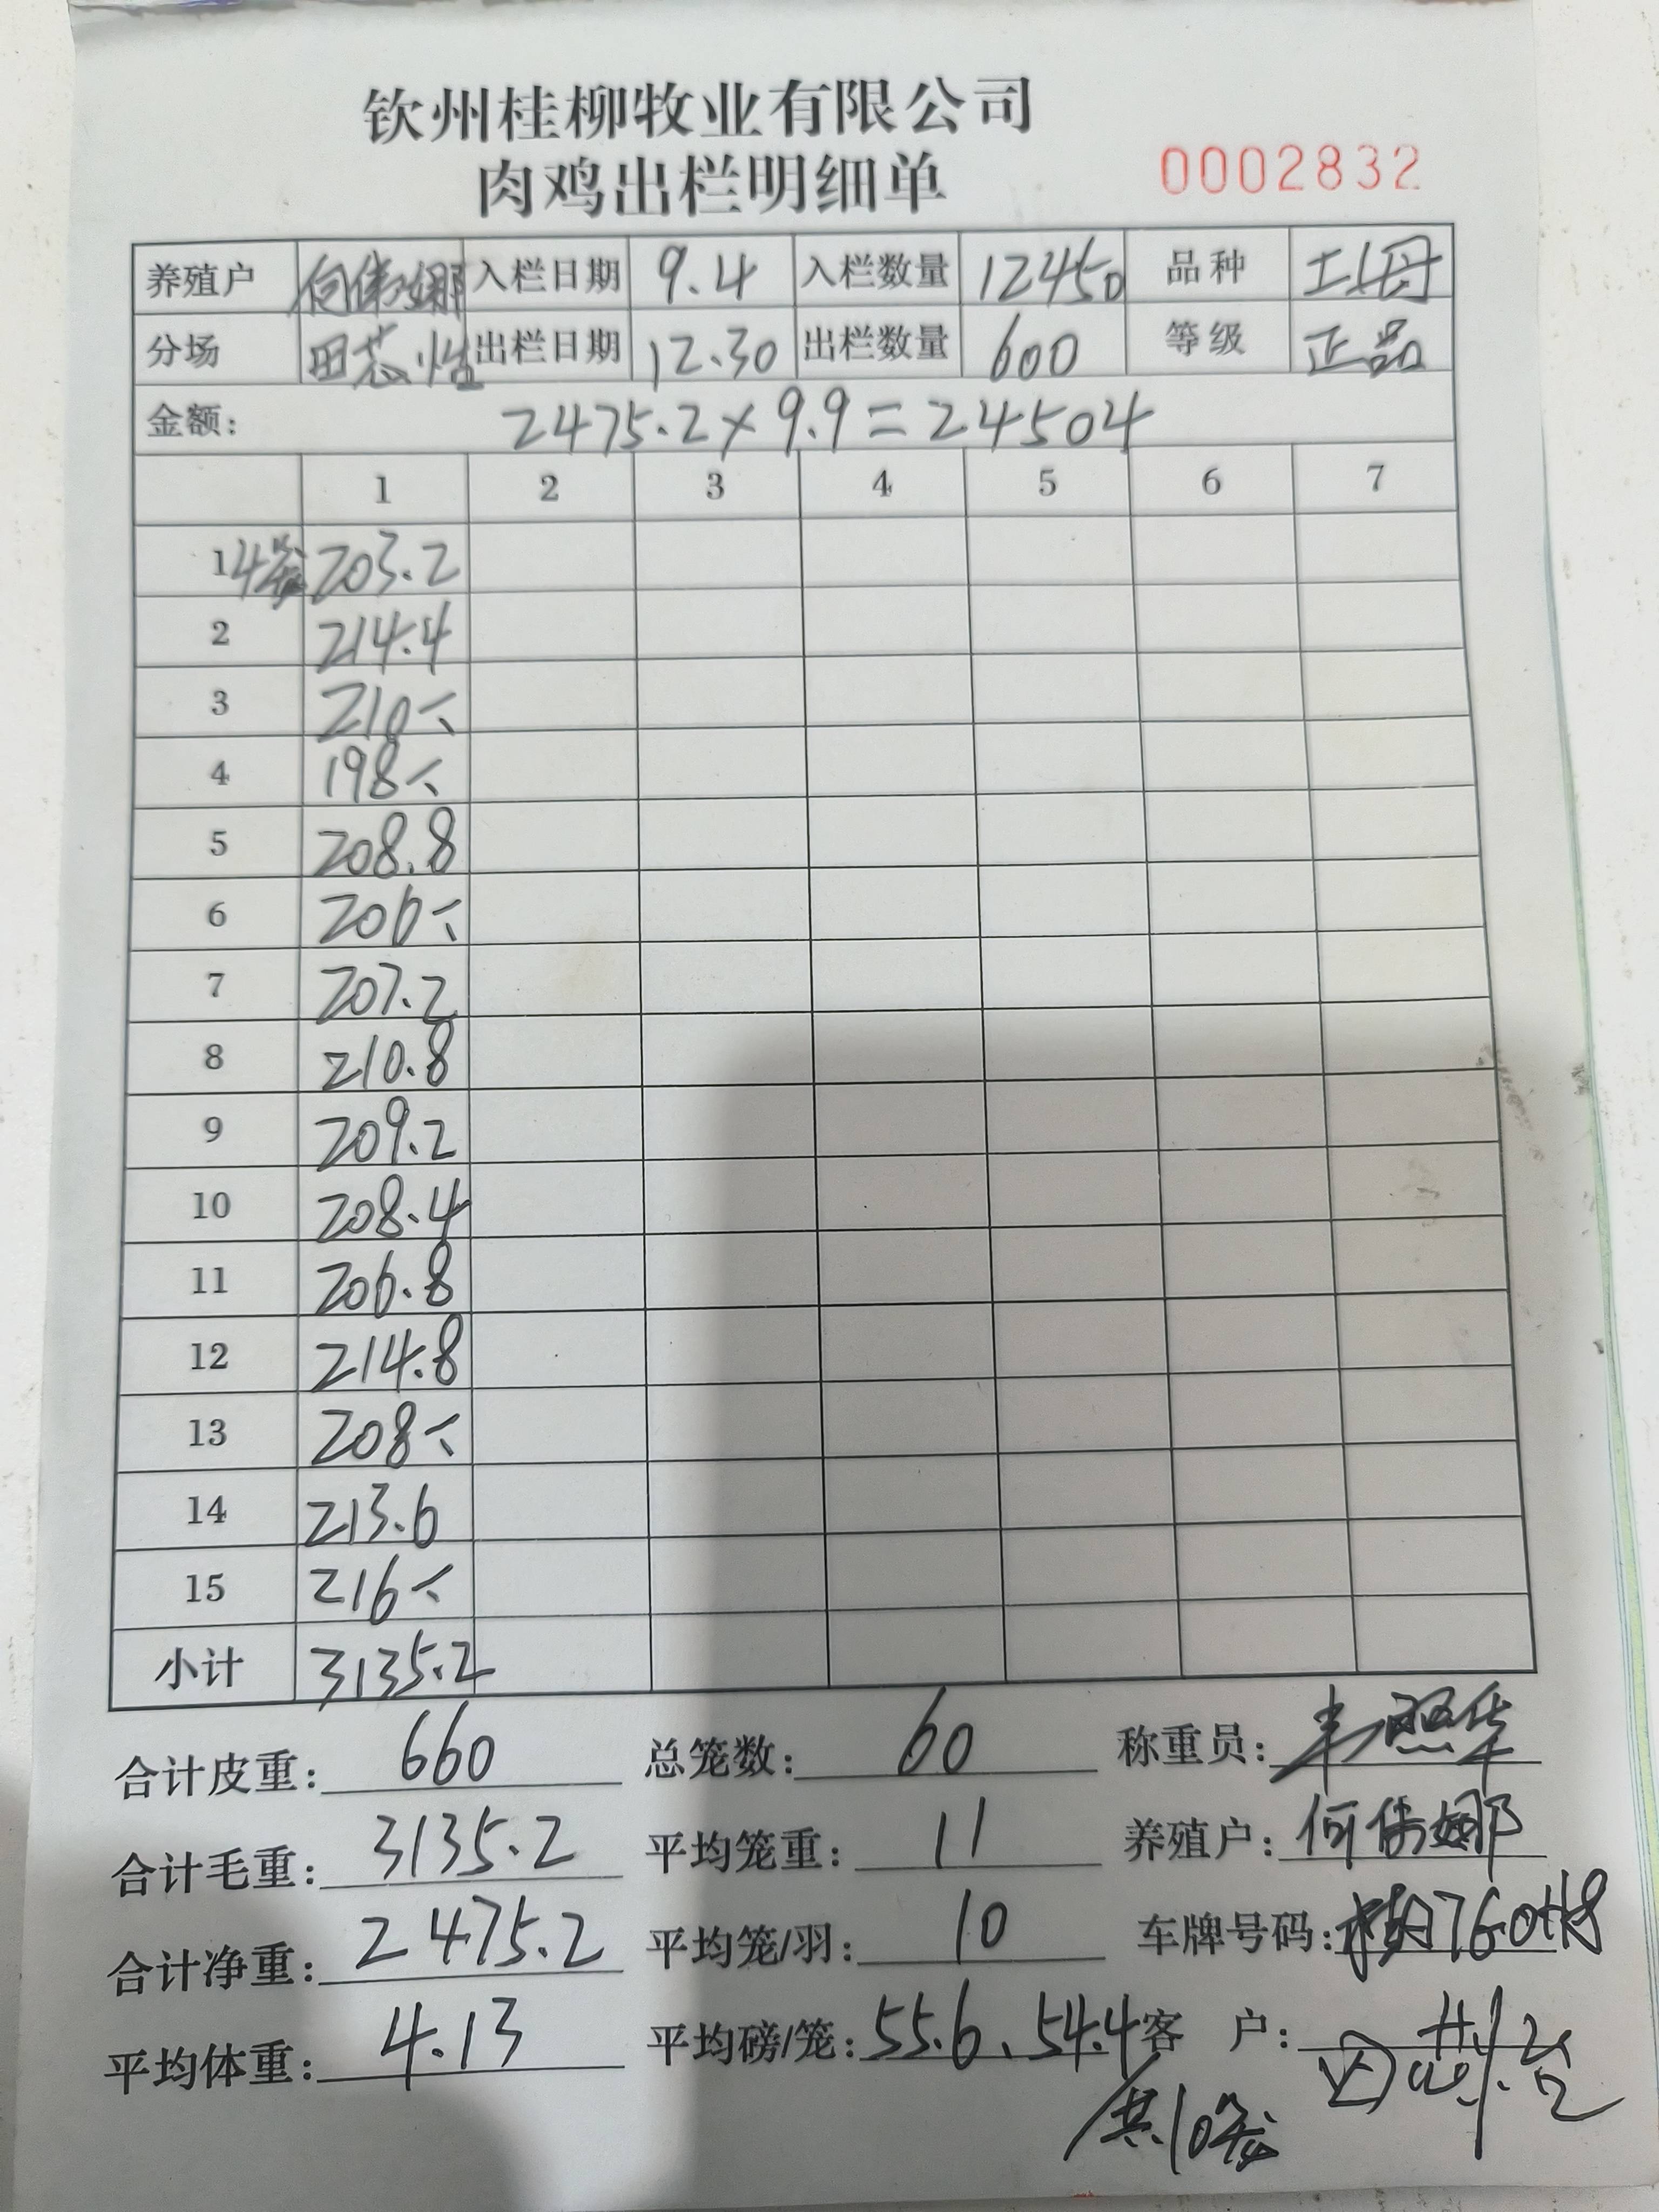 钦州桂柳牧业有限公司
肉鸡出栏明细单
0002832
养殖户 何伟娜 入栏日期 9.4 入栏数量 12450 品种 土母
分场 田芯怡 出栏日期 12.30 出栏数量 600 等级 正品
金额: 2475.2×9.9=24504
1 2 3 4 5 6 7
1 4笼 203.2
2 214.4
3 210
4 198
5 208.8
6 206
7 207.2
8 210.8
9 209.2
10 208.4
11 206.8
12 214.8
13 208
14 213.6
15 216
小计 3135.2
合计皮重: 660 总笼数: 60 称重员:
合计毛重: 3135.2 平均笼重: 11 养殖户: 何伟娜
合计净重: 2475.2 平均笼/羽: 10 车牌号码:
平均体重: 4.13 平均磅/笼: 55.6、54.4 客户:
共10笼